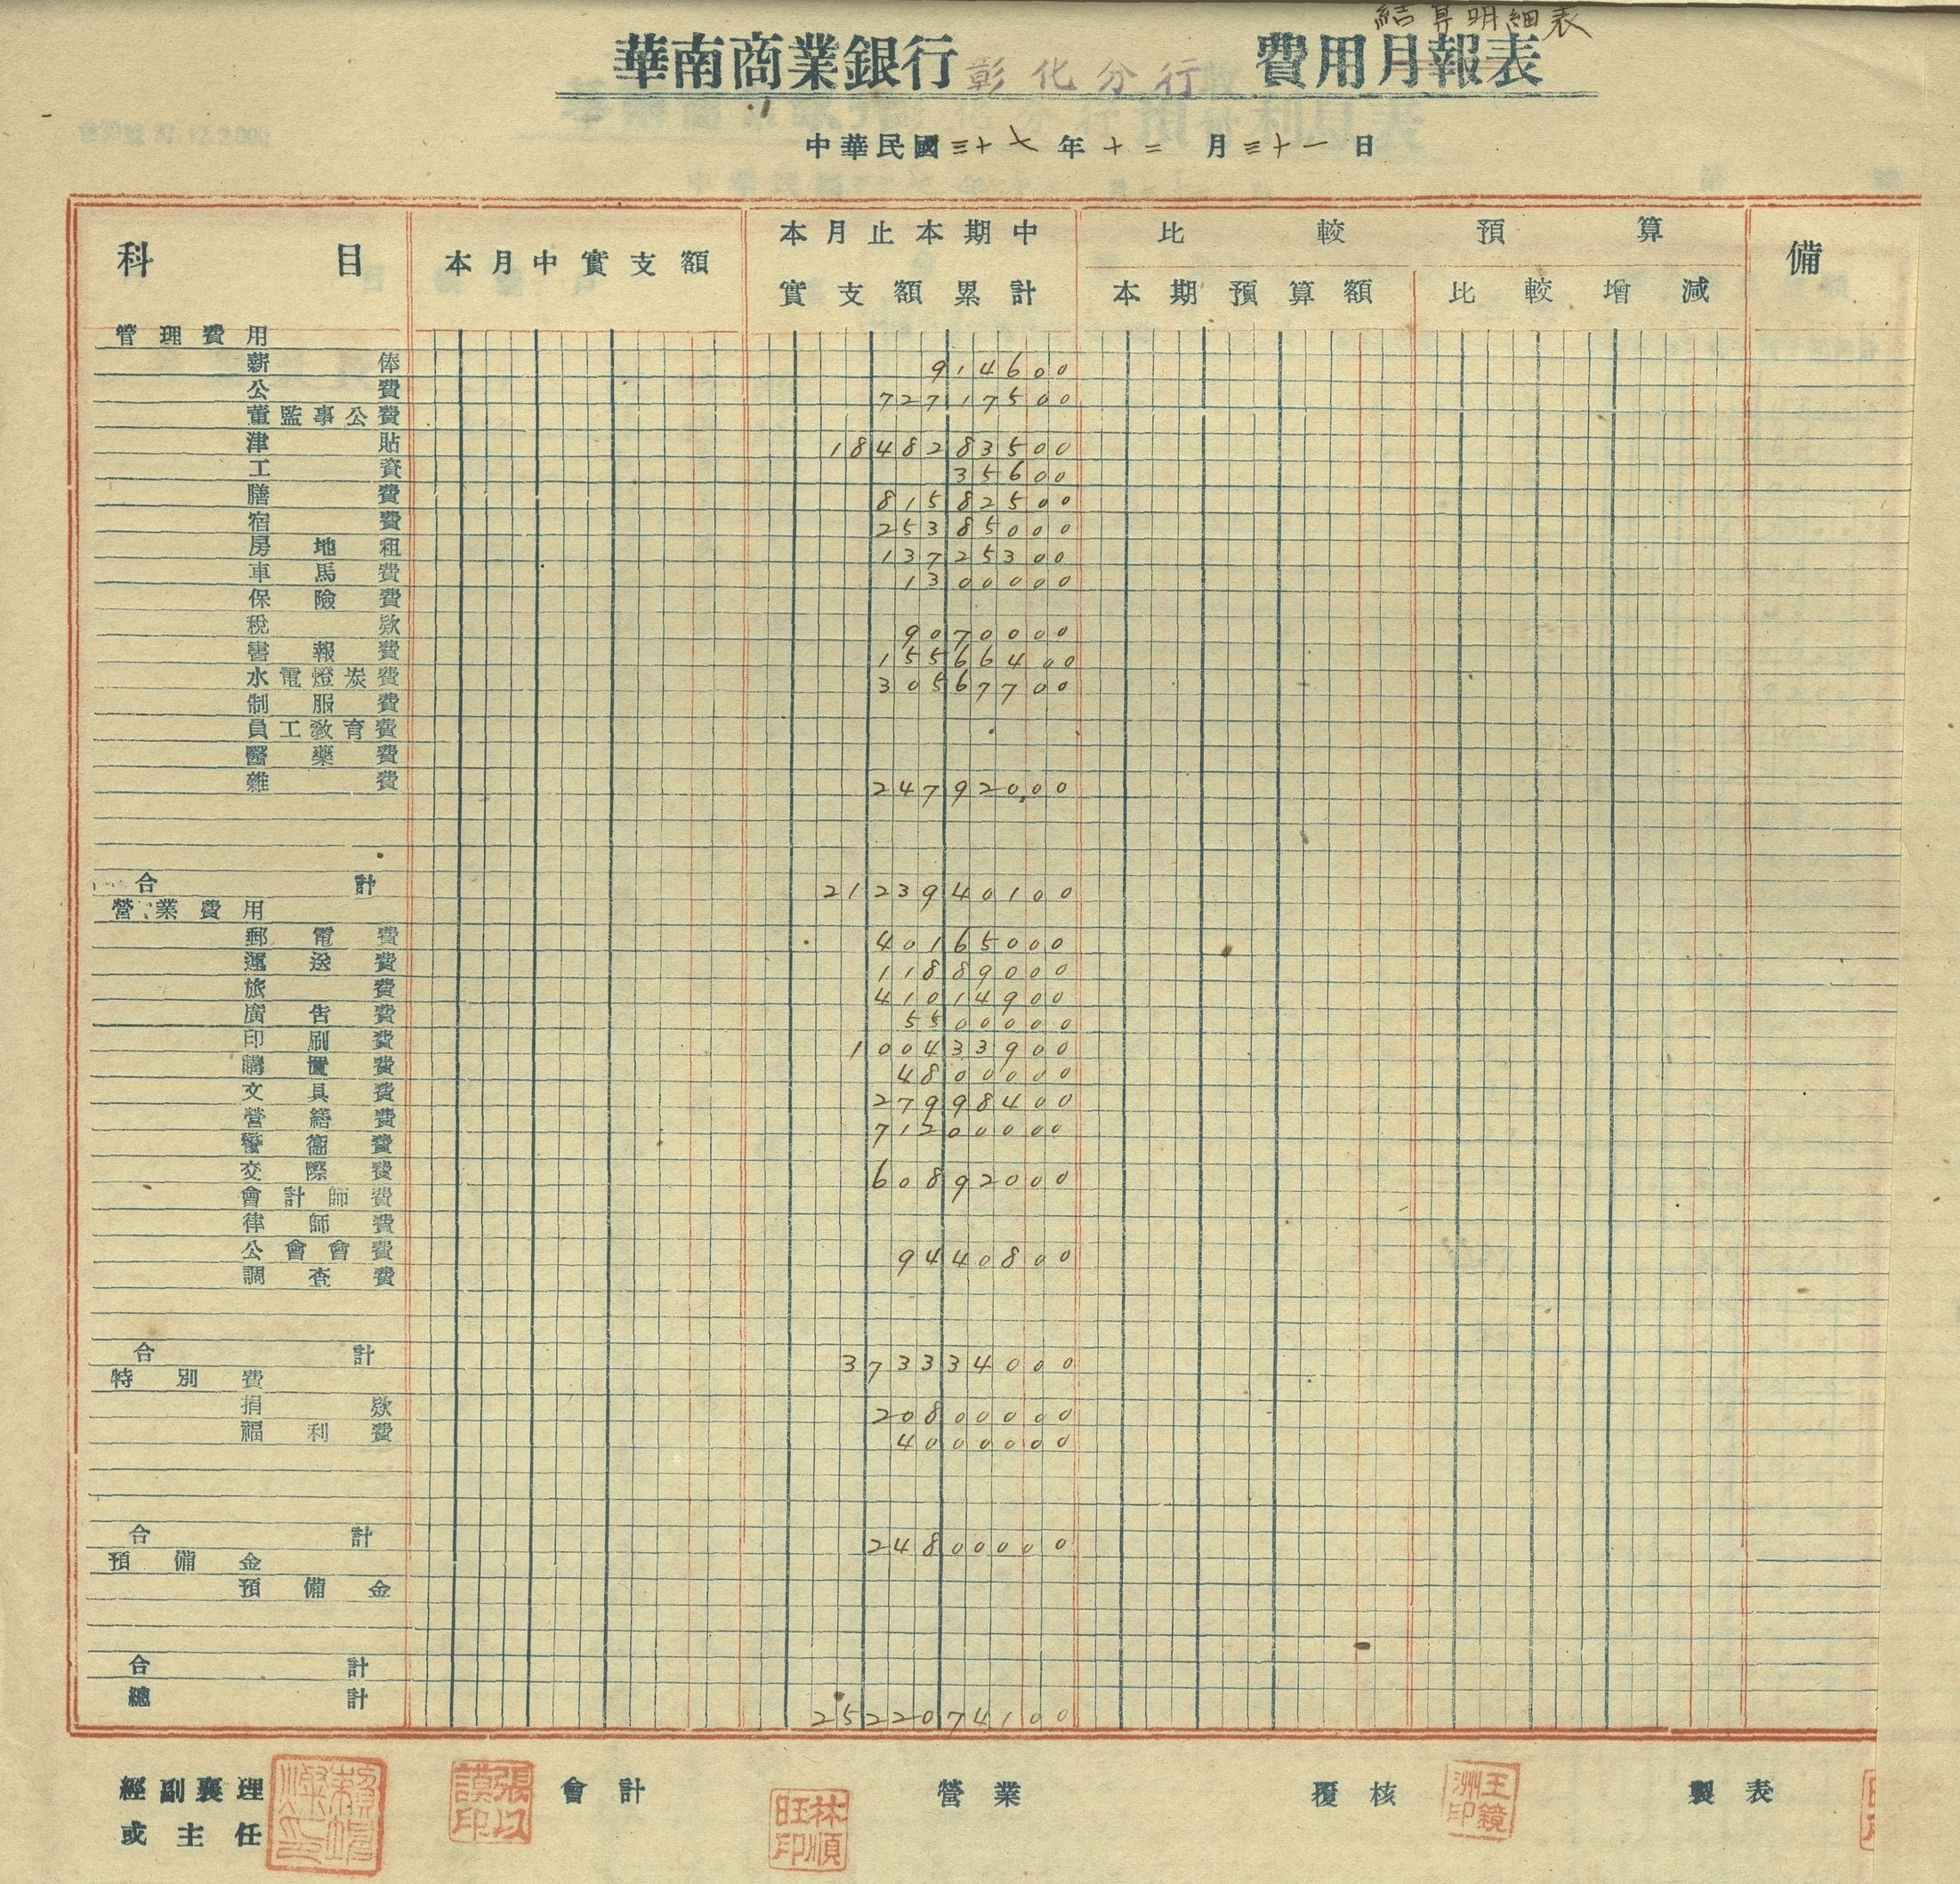 結算明細表
華南商業銀行彰化分行 費用月報表
中華民國三十七年十二月三十一日
科目 本月中實支額 本月止本期中實支額累計 比較預算 備
本期預算額 比較增減
管理費用
薪俸 914600
公費 72717500
董監事公費
津貼 1848283500
工資 35600
膳費 81582500
宿費 25385000
房地租 13725300
車馬費 1300000
保險費
稅款 9070000
書報費 15566400
水電燈炭費 30567700
制服費
員工教育費
醫藥費
雜費 24792000
合計 2123940100
營業費用
郵電費 40165000
運送費 11889000
旅費 41014900
廣告費 5500000
印刷費 100433900
購置費 4800000
文具費 27998400
營繕費 71200000
警衛費
交際費 60892000
會計師費
律師費
公會會費 9440800
調查費
合計 373334000
特別費
捐款 20800000
福利費 4000000
合計 24800000
預備金
預備金
合計
總計 2522074100
經副襄理或主任 會計 營業 覆核 製表
張以謨印
林順旺印
王鏡洲印